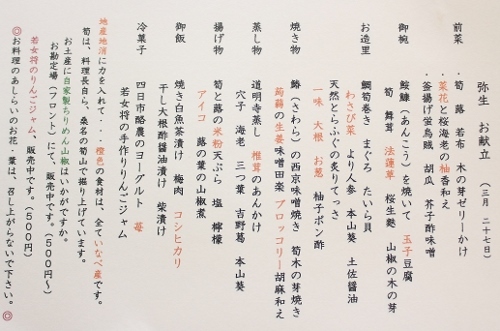 弥生 お献立 (三月 二十七日)
前菜 ・筍 蕗 若布 木の芽ゼリーかけ
・菜花と桜海老の柚香和え
・釜揚げ蛍烏賊 胡瓜 芥子酢味噌
御椀 鮟鱇(あんこう)を焼いて 玉子豆腐
筍 舞茸 法蓮草 桜生麩 山椒の木の芽
お造里 鯛筍巻き まぐろ たいら貝
わさび菜 より人参 本山葵 土佐醤油
天然とらふぐの炙りてっさ
一味 大根 お葱 柚子ポン酢
焼き物 鰆(さわら)の西京味噌焼き 筍木の芽焼き
蒟蒻の生姜味噌田楽 ブロッコリー胡麻和え
蒸し物 道明寺蒸し 椎茸のあんかけ
穴子 海老 三つ葉 吉野葛 本山葵
揚げ物 筍と蕗の米粉天ぷら 塩 檸檬
アイコ 蕗の葉の山椒煮
御飯 焼き白魚茶漬け 梅肉 コシヒカリ
干し大根酢醤油漬け 柴漬け
冷菓子 四日市酪農のヨーグルト 苺
若女将の手作りりんごジャム
地産地消に力を入れて・・橙色の食材は、全ていなべ産です。
筍は、料理長自ら、桑名の筍山で掘り上げています。
お土産に自家製ちりめん山椒はいかがですか。
お勘定場(フロント)にて、販売中です。(500円~)
若女将のりんごジャム、販売中です。(500円)
◎お料理のあしらいのお花・葉は、召し上がらないで下さい。◎